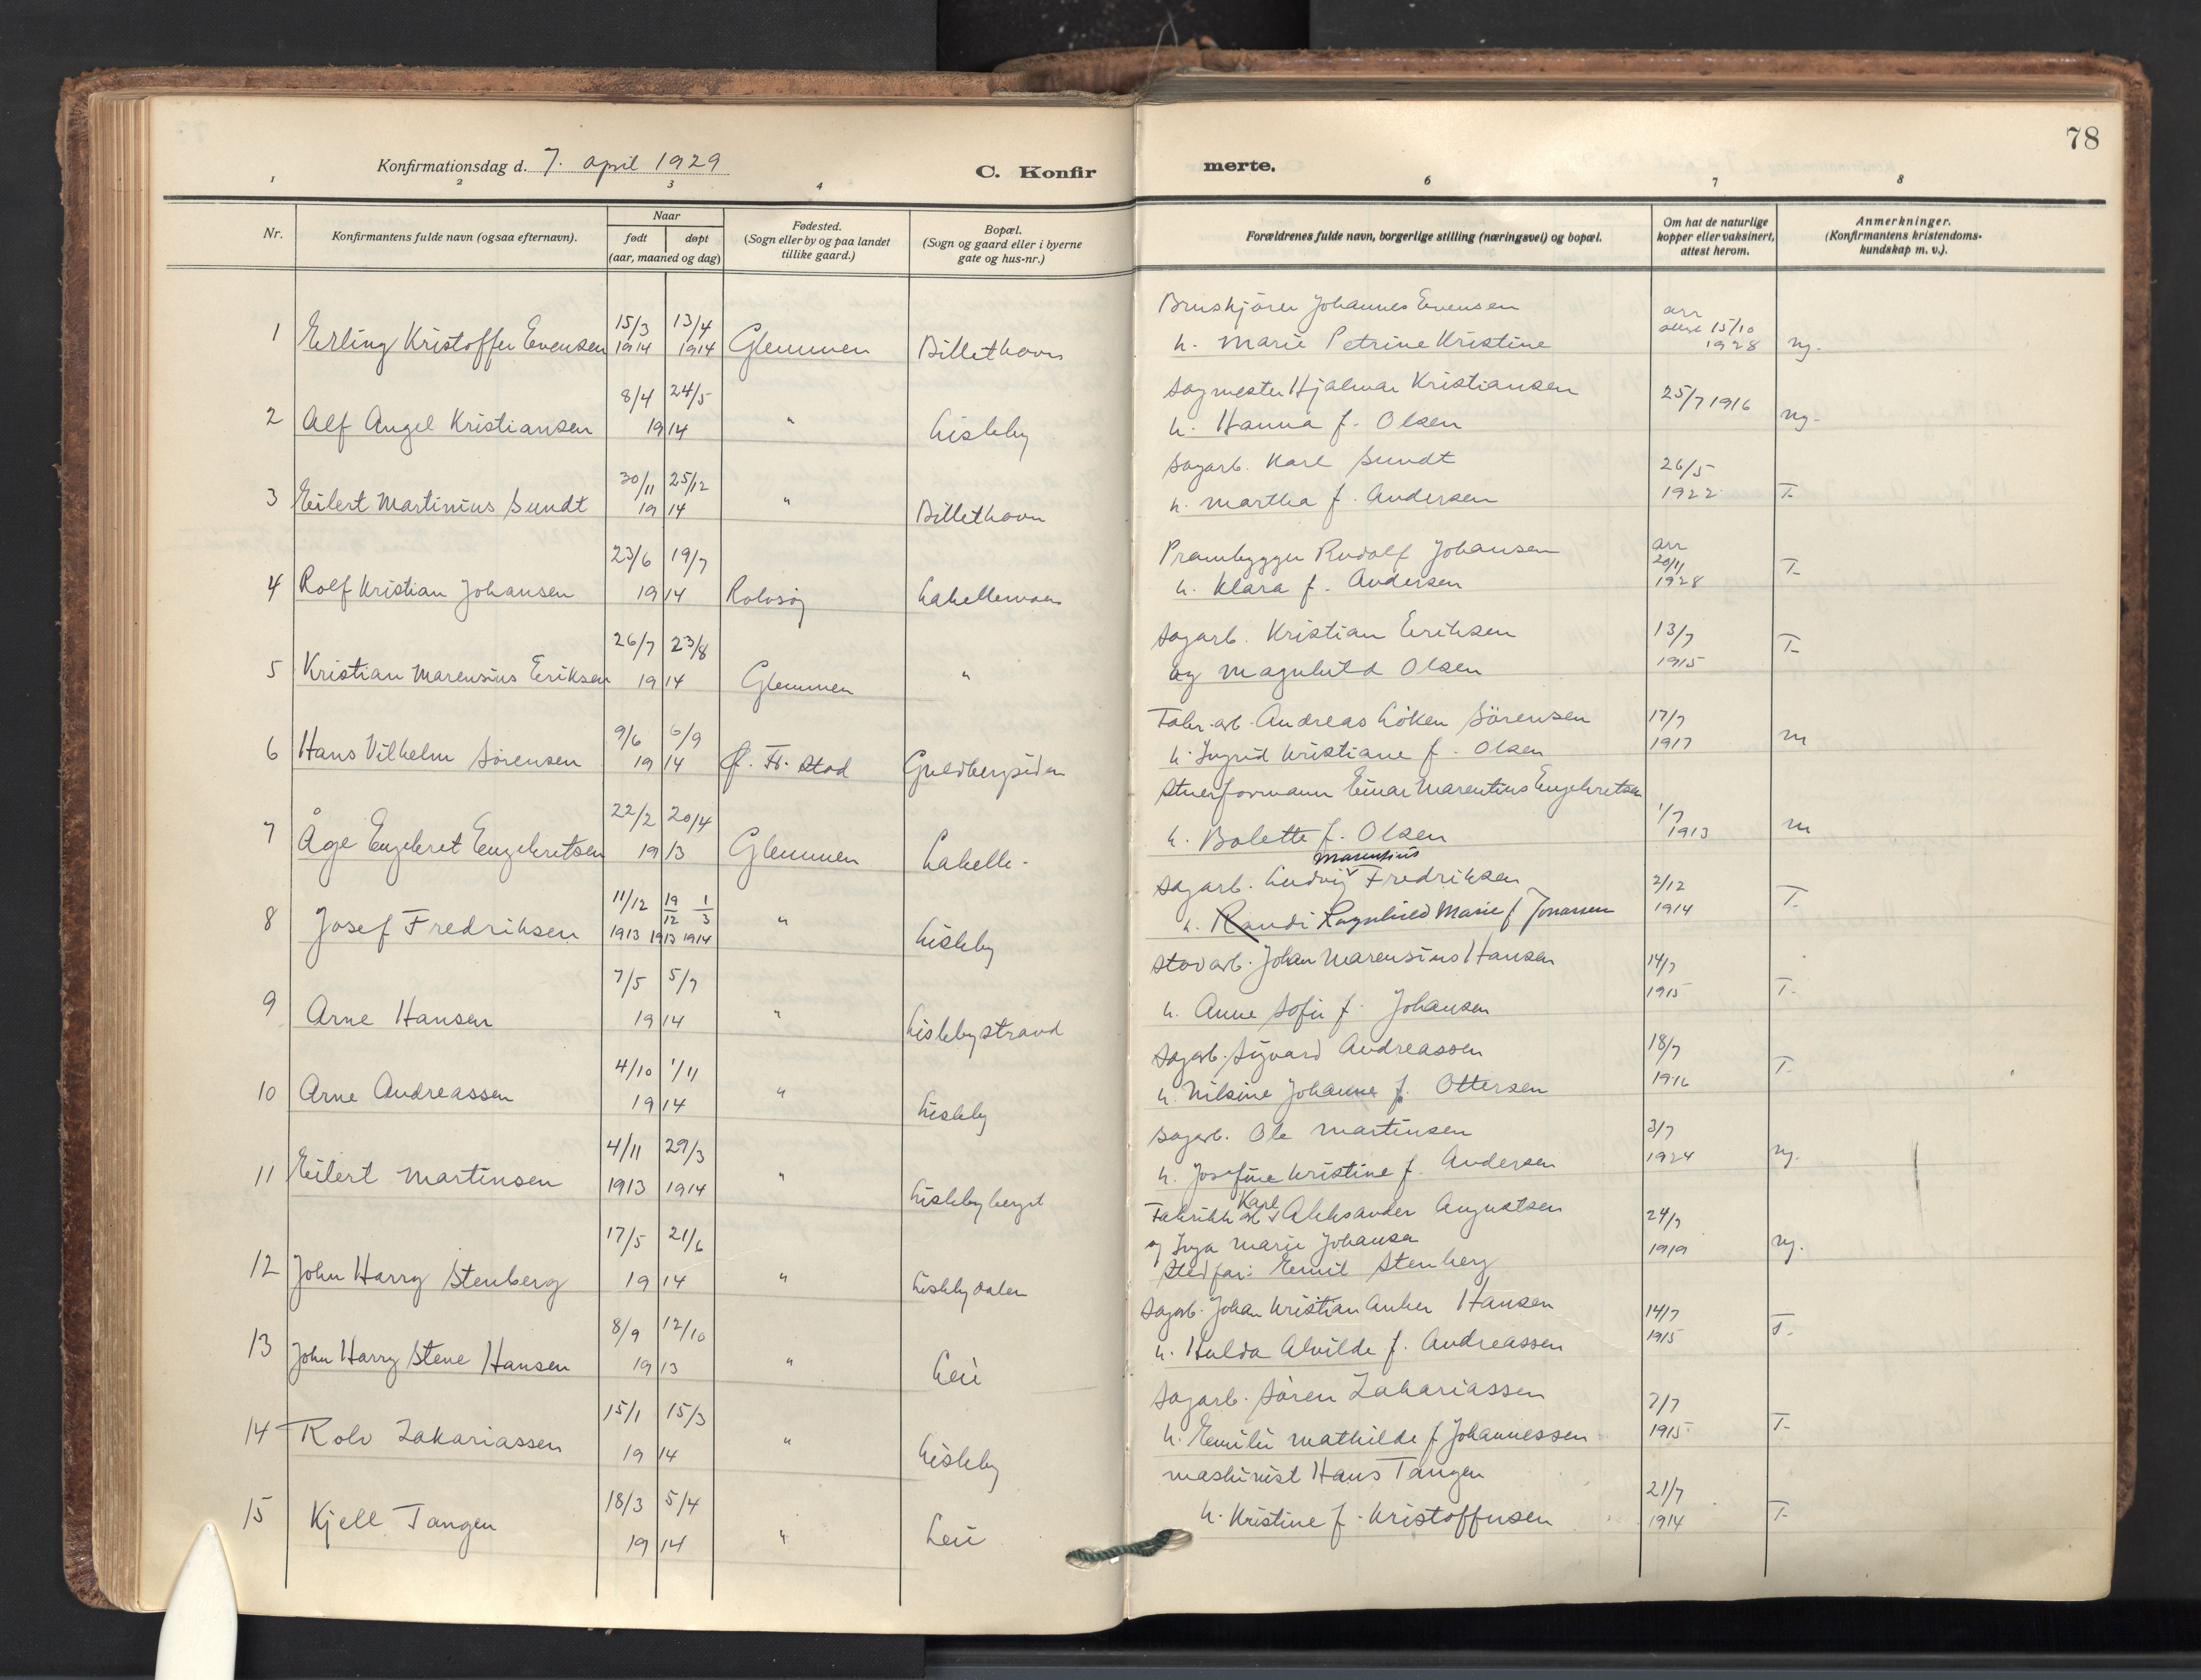 78
Konfirmationsdag d. 7. april 1929
C. Konfirmerte.
1 2 3 4 6 7 8
Nr.
Konfirmantens fulde navn (ogsaa efternavn).
Naar
født døpt
(aar, maaned og dag)
Fødested.
(Sogn eller by og paa landet
tillike gaard.)
Bopæl.
(Sogn og gaard eller i byerne
gate og hus-nr.)
Forældrenes fulde navn, borgerlige stilling (næringsvei) og bopæl.
Om hat de naturlige
kopper eller vaksinert,
attest herom.
Anmerkninger.
(Konfirmantens kristendoms-
kundskap m. v.).
1 Erling Kristoffer Evensen 15/3 1914 13/4 1914 Glemmen Billethavn
Bruskjører Johannes Evensen
h. Marie Petrine Kristine
arr attest 15/10 1928 ng.
2 Alf Angel Kristiansen 8/4 24/5 1914 " Lisleby
Sagmester Hjalmar Kristiansen
h. Hanna f. Olsen
25/7 1916 ng.
3 Eilert Martinius Sundt 30/11 25/12 1914 " Billethavn
Sagarb. Karl Sundt
h. Martha f. Andersen
26/5 1922 T.
4 Rolf Kristian Johansen 23/6 19/7 1914 Rolvsøy Lahellemoen
Prambygger Rudolf Johansen
h. Klara f. Andersen
arr 20/11 1928 T.
5 Kristian Marensius Eriksen 26/7 23/8 1914 Glemmen "
Sagarb. Kristian Eriksen
og Magnhild Olsen
13/7 1915 T.
6 Hans Vilhelm Sørensen 9/6 6/9 1914 Ø. Fr. stad Guldbergsiden
Fabr. arb. Andreas Løken Sörensen
h. Ingrid Kristiane f. Olsen
17/7 1917 m
7 Åge Engebret Engebretsen 22/2 20/4 1913 Glemmen Lahelle-
Stuerformann Einar Marentius Engebretsen
h. Bolette f. Olsen
1/7 1913 m
8 Josef Fredriksen 11/12 1913 19/12 1913 1/3 1914 " Lisleby
Sagarb. Ludvig Marensius Fredriksen
h. Randi Ragnhild Marie f Jonassen
2/12 1914 T.
9 Arne Hansen 7/5 5/7 1914 " Lislebystrand
Stavarb. Johan Marensius Hansen
h. Anne Sofie f. Johansen
14/7 1915 T.
10 Arne Andreassen 4/10 1/11 1914 " Lisleby
Sagarb. Sigvard Andreassen
h. Nilsine Johanne f. Ottersen
18/7 1916 T.
11 Eilert Martinsen 4/11 1913 29/3 1914 " Lislebyberget
Sagarb. Ole Martinsen
h. Josefine Kristine f. Andersen
3/7 1924 ng.
12 John Harry Stenberg 17/5 21/6 1914 " Lislebydalen
Fabrikk arb Karl Aleksander Augustsen
og Inga Marie Johansen
Stedfar: Emil Stenberg
24/7 1919 ng.
13 John Harry Stene Hansen 8/9 12/10 1913 " Leie
Sagarb. Johan Kristian Anker Hansen
h. Hulda Alvilde f. Andreassen
14/7 1915 T.
14 Rolv Zakariassen 15/1 15/3 1914 " Lisleby
Sagarb. Sören Zakariassen
h. Emilie Mathilde f Johannessen
7/7 1915 T.
15 Kjell Tangen 18/3 5/4 1914 " Leie
Maskinist Hans Tangen
h. Kristine f. Kristoffersen
21/7 1914 T.